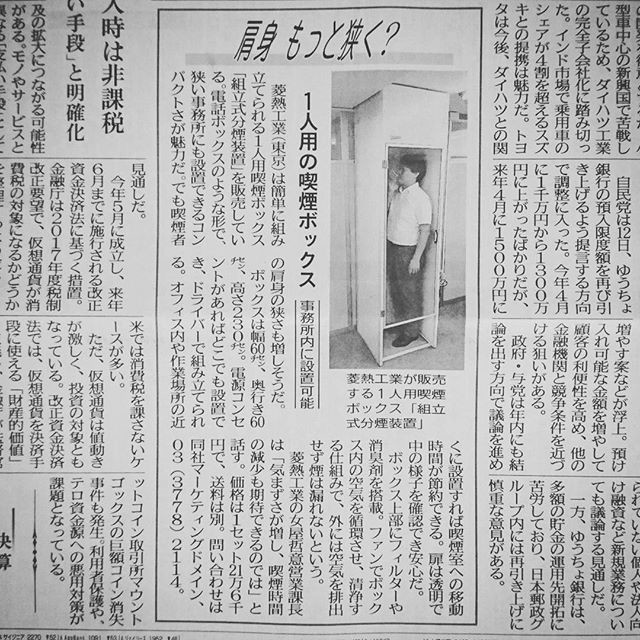 型車中心の新興国で苦戦し
ているため、ダイハツ工業
の完全子会社化に踏み切っ
た。インド市場で乗用車の
シェアが4割を超えるスズ
キとの提携は魅力だ。トヨ
タは今後、ダイハツとの関
自民党は12日、ゆうちょ
銀行の預入限度額を再び引
き上げるよう提言する方向
で調整に入った。今年4月
に1千万円から1300万
円に上がったばかりだが、
来年4月に1500万円に
増やす案などが浮上。預け
入れ可能な金額を増やして
顧客の利便性を高め、他の
金融機関と競争条件を近づ
ける狙いがある。
政府・与党は年内にも結
論を出す方向で議論を進め
融資など新規業務につい
ても議論する見通しだ。
一方、ゆうちょ銀行は、
多額の貯金の運用先開拓に
苦労しており、日本郵政グ
ループ内には再引き上げに
慎重な意見がある。
肩身 もっと狭く?
1人用の喫煙ボックス
事務所内に設置可能
菱熱工業が販売
する1人用喫煙
ボックス「組立
式分煙装置」
菱熱工業(東京)は簡単に組み
立てられる1人用喫煙ボックス
「組立式分煙装置」を販売してい
る。電話ボックスのような形で、
狭い事務所にも設置できるコン
パクトさが魅力だ。でも喫煙者
の肩身の狭さも増しそうだ。
ボックスは幅60㌢、奥行き60
㌢、高さ230㌢。電源コンセ
ントがあればどこでも設置で
き、ドライバーで組み立てられ
る。オフィス内や作業場所の近
くに設置すれば喫煙室への移動
時間が節約できる。扉は透明で
中の様子を確認でき安心だ。
ボックス上部にフィルターや
消臭剤を搭載。ファンでボック
ス内の空気を循環させ、清浄す
る仕組みで、外には空気を排出
せず煙は漏れないという。
菱熱工業の女屋哲意営業課長
は「気まずさが増し、喫煙時間
の減少も期待できるのでは」と
話す。価格は1セット21万6千
円で、送料は別。問い合わせは
同社マーケティングドメイン、
03(3778)2114。
入時は非課税
い手段」と明確化
及の拡大につながる可能性
がある。モノやサービスと
見通しだ。
今年5月に成立し、来年
6月までに施行される改正
資金決済法に基づく措置。
金融庁は2017年度税制
改正要望で、仮想通貨が消
費税の対象になるかどうか
米では消費税を課さないケ
ースが多い。
ただ、仮想通貨は値動き
が激しく、投資の対象とも
なっている。改正資金決済
法では、仮想通貨を決済手
段に使える「財産的価値」
ットコイン取引所マウント
ゴックスの巨額コイン消失
事件も発生。利用者保護や、
テロ資金源への悪用対策が
課題となっている。
決算